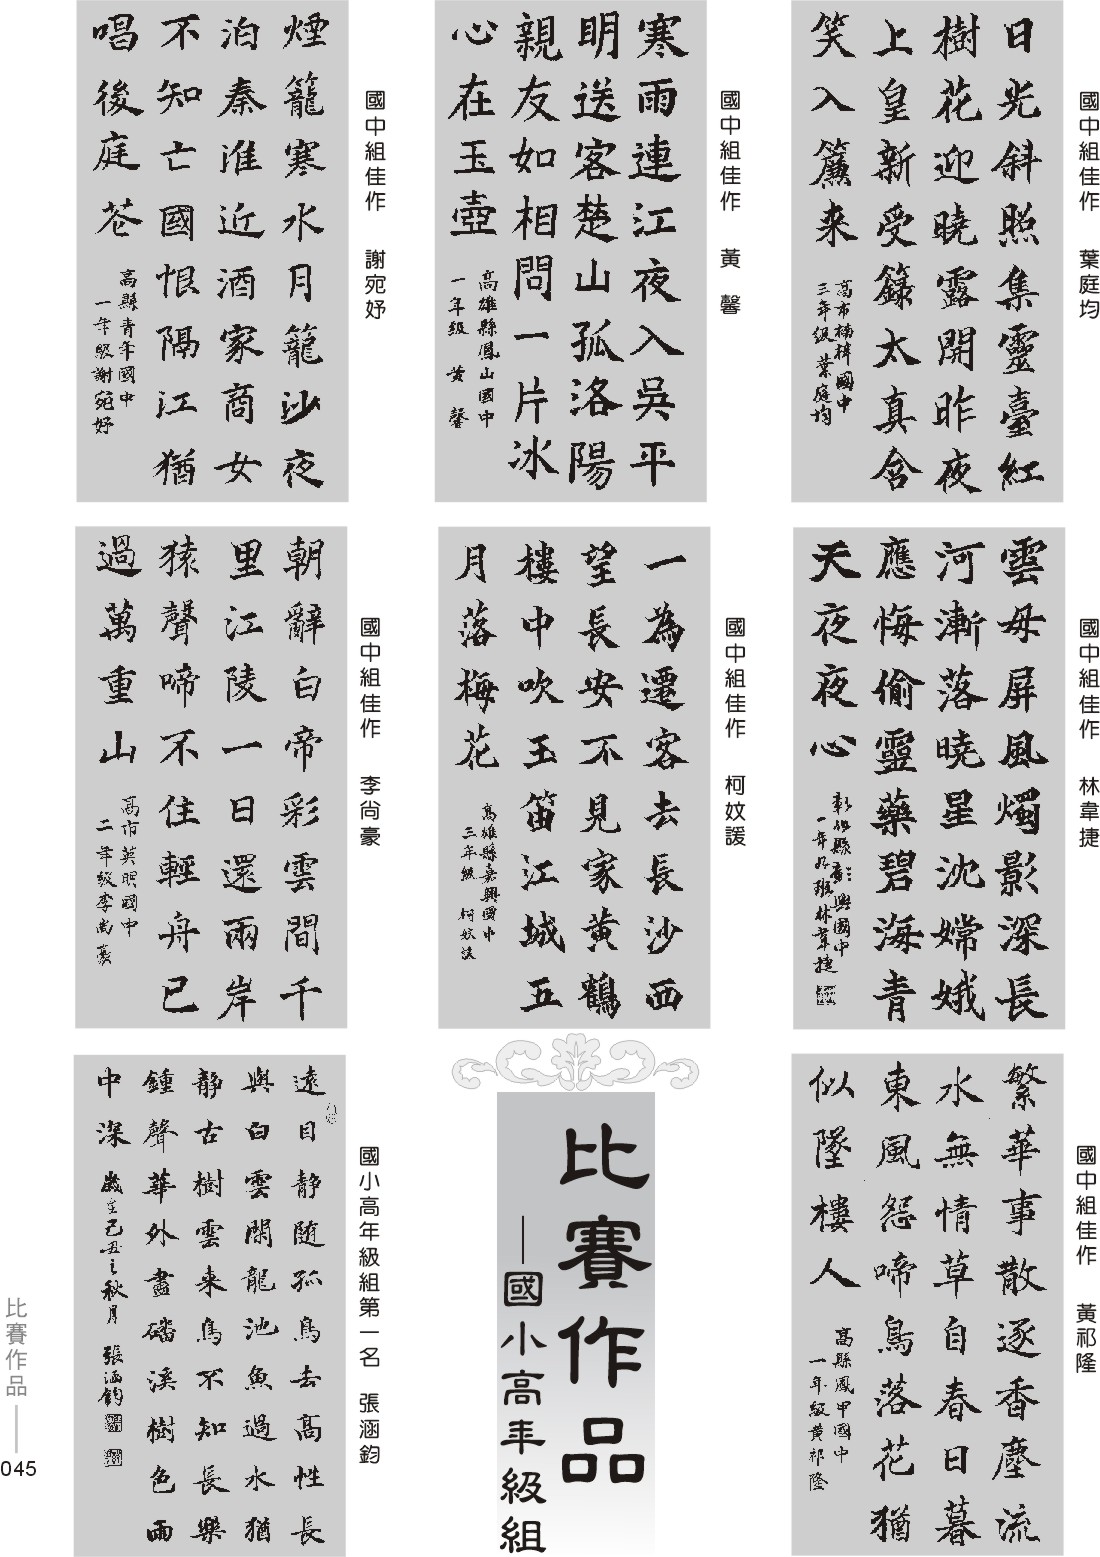 國中組佳作 葉庭均
日光斜照集靈臺紅
樹花迎曉露開昨夜
上皇新受籙太真含
笑入簾来
高市楠梓國中
三年級 葉庭均
國中組佳作 黃 馨
寒雨連江夜入吳平
明送客楚山孤洛陽
親友如相問一片冰
心在玉壺
高雄縣鳳山國中
一年級 黃 馨
國中組佳作 謝宛妤
煙籠寒水月籠沙夜
泊秦淮近酒家商女
不知亡國恨隔江猶
唱後庭花
高縣青年國中
一年級謝宛妤
國中組佳作 林韋捷
雲母屏風燭影深長
河漸落曉星沈嫦娥
應悔偷靈藥碧海青
天夜夜心
彰化縣彰興國中
一年九班林韋捷
國中組佳作 柯妏諼
一為遷客去長沙西
望長安不見家黃鶴
樓中吹玉笛江城五
月落梅花
高雄縣嘉興國中
三年級 柯妏諼
國中組佳作 李尚豪
朝辭白帝彩雲間千
里江陵一日還兩岸
猿聲啼不住輕舟已
過萬重山
高市英明國中
二年級李尚豪
國中組佳作 黃祁隆
繁華事散逐香塵流
水無情草自春日暮
東風怨啼鳥落花猶
似墜樓人
高縣鳳甲國中
一年級黃祁隆
比賽作品
—國小高年級組
國小高年級組第一名 張涵鈞
遠目靜随孤鳥去高性長
與白雲閑龍池魚過水猶
靜古樹雲来鳥不知長樂
鍾聲華外盡磻溪樹色雨
中深 歲在己丑之秋月 張涵鈞
比賽作品—
045